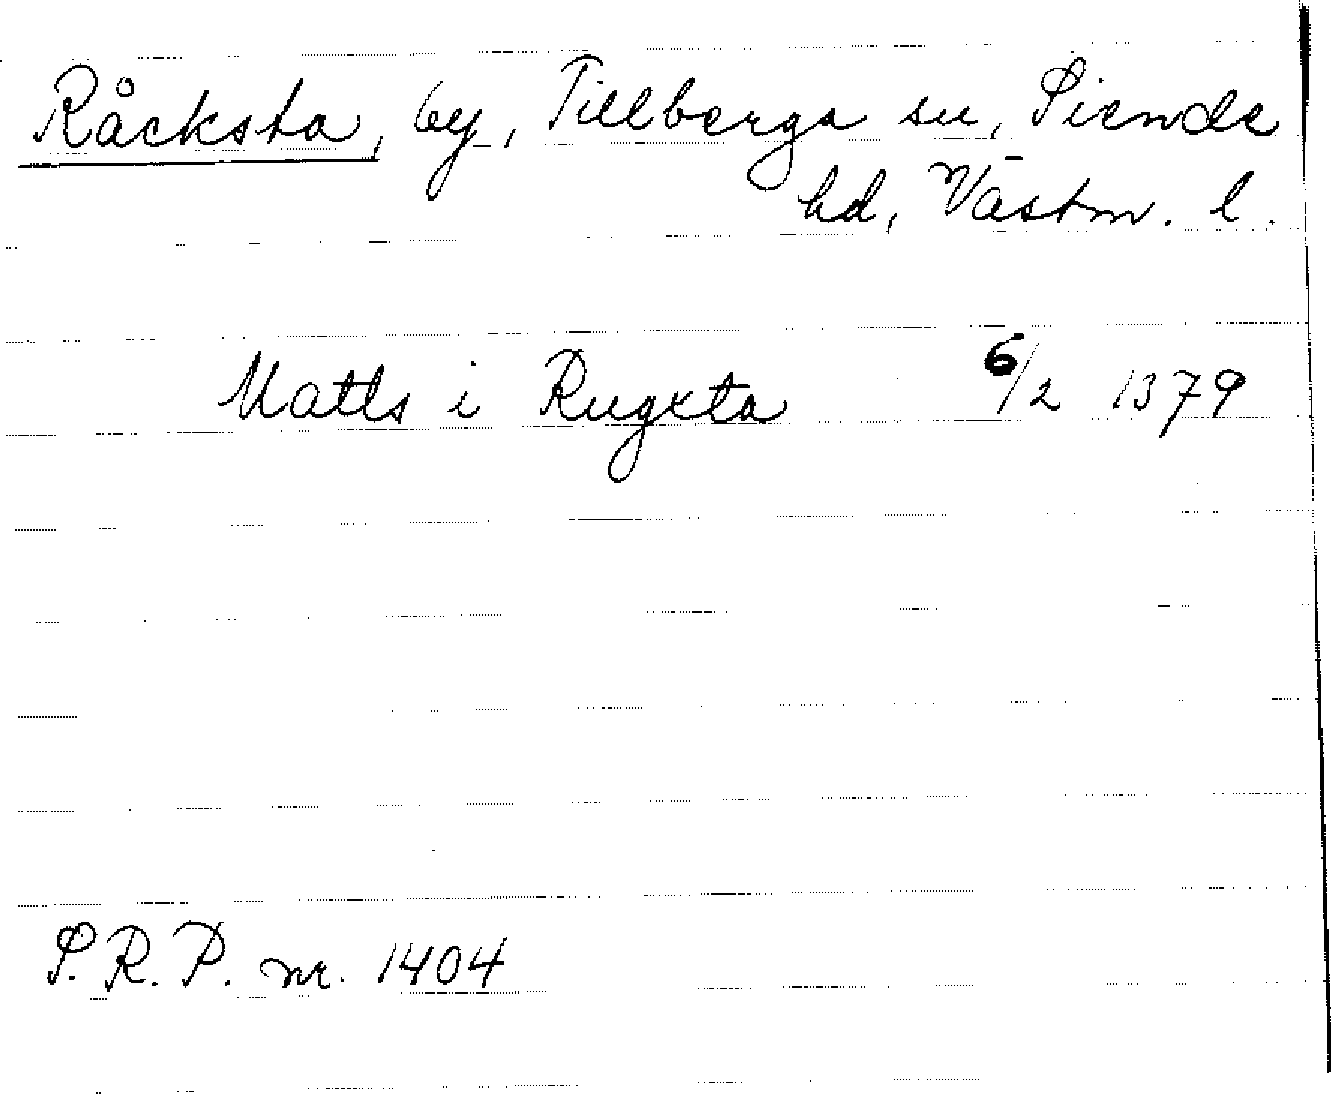 Råcksta, by, Tillberga sn, Siende
hd, Västm. l.
Matts i Rugxta 6/2 1379
S.R.P. nr. 1404